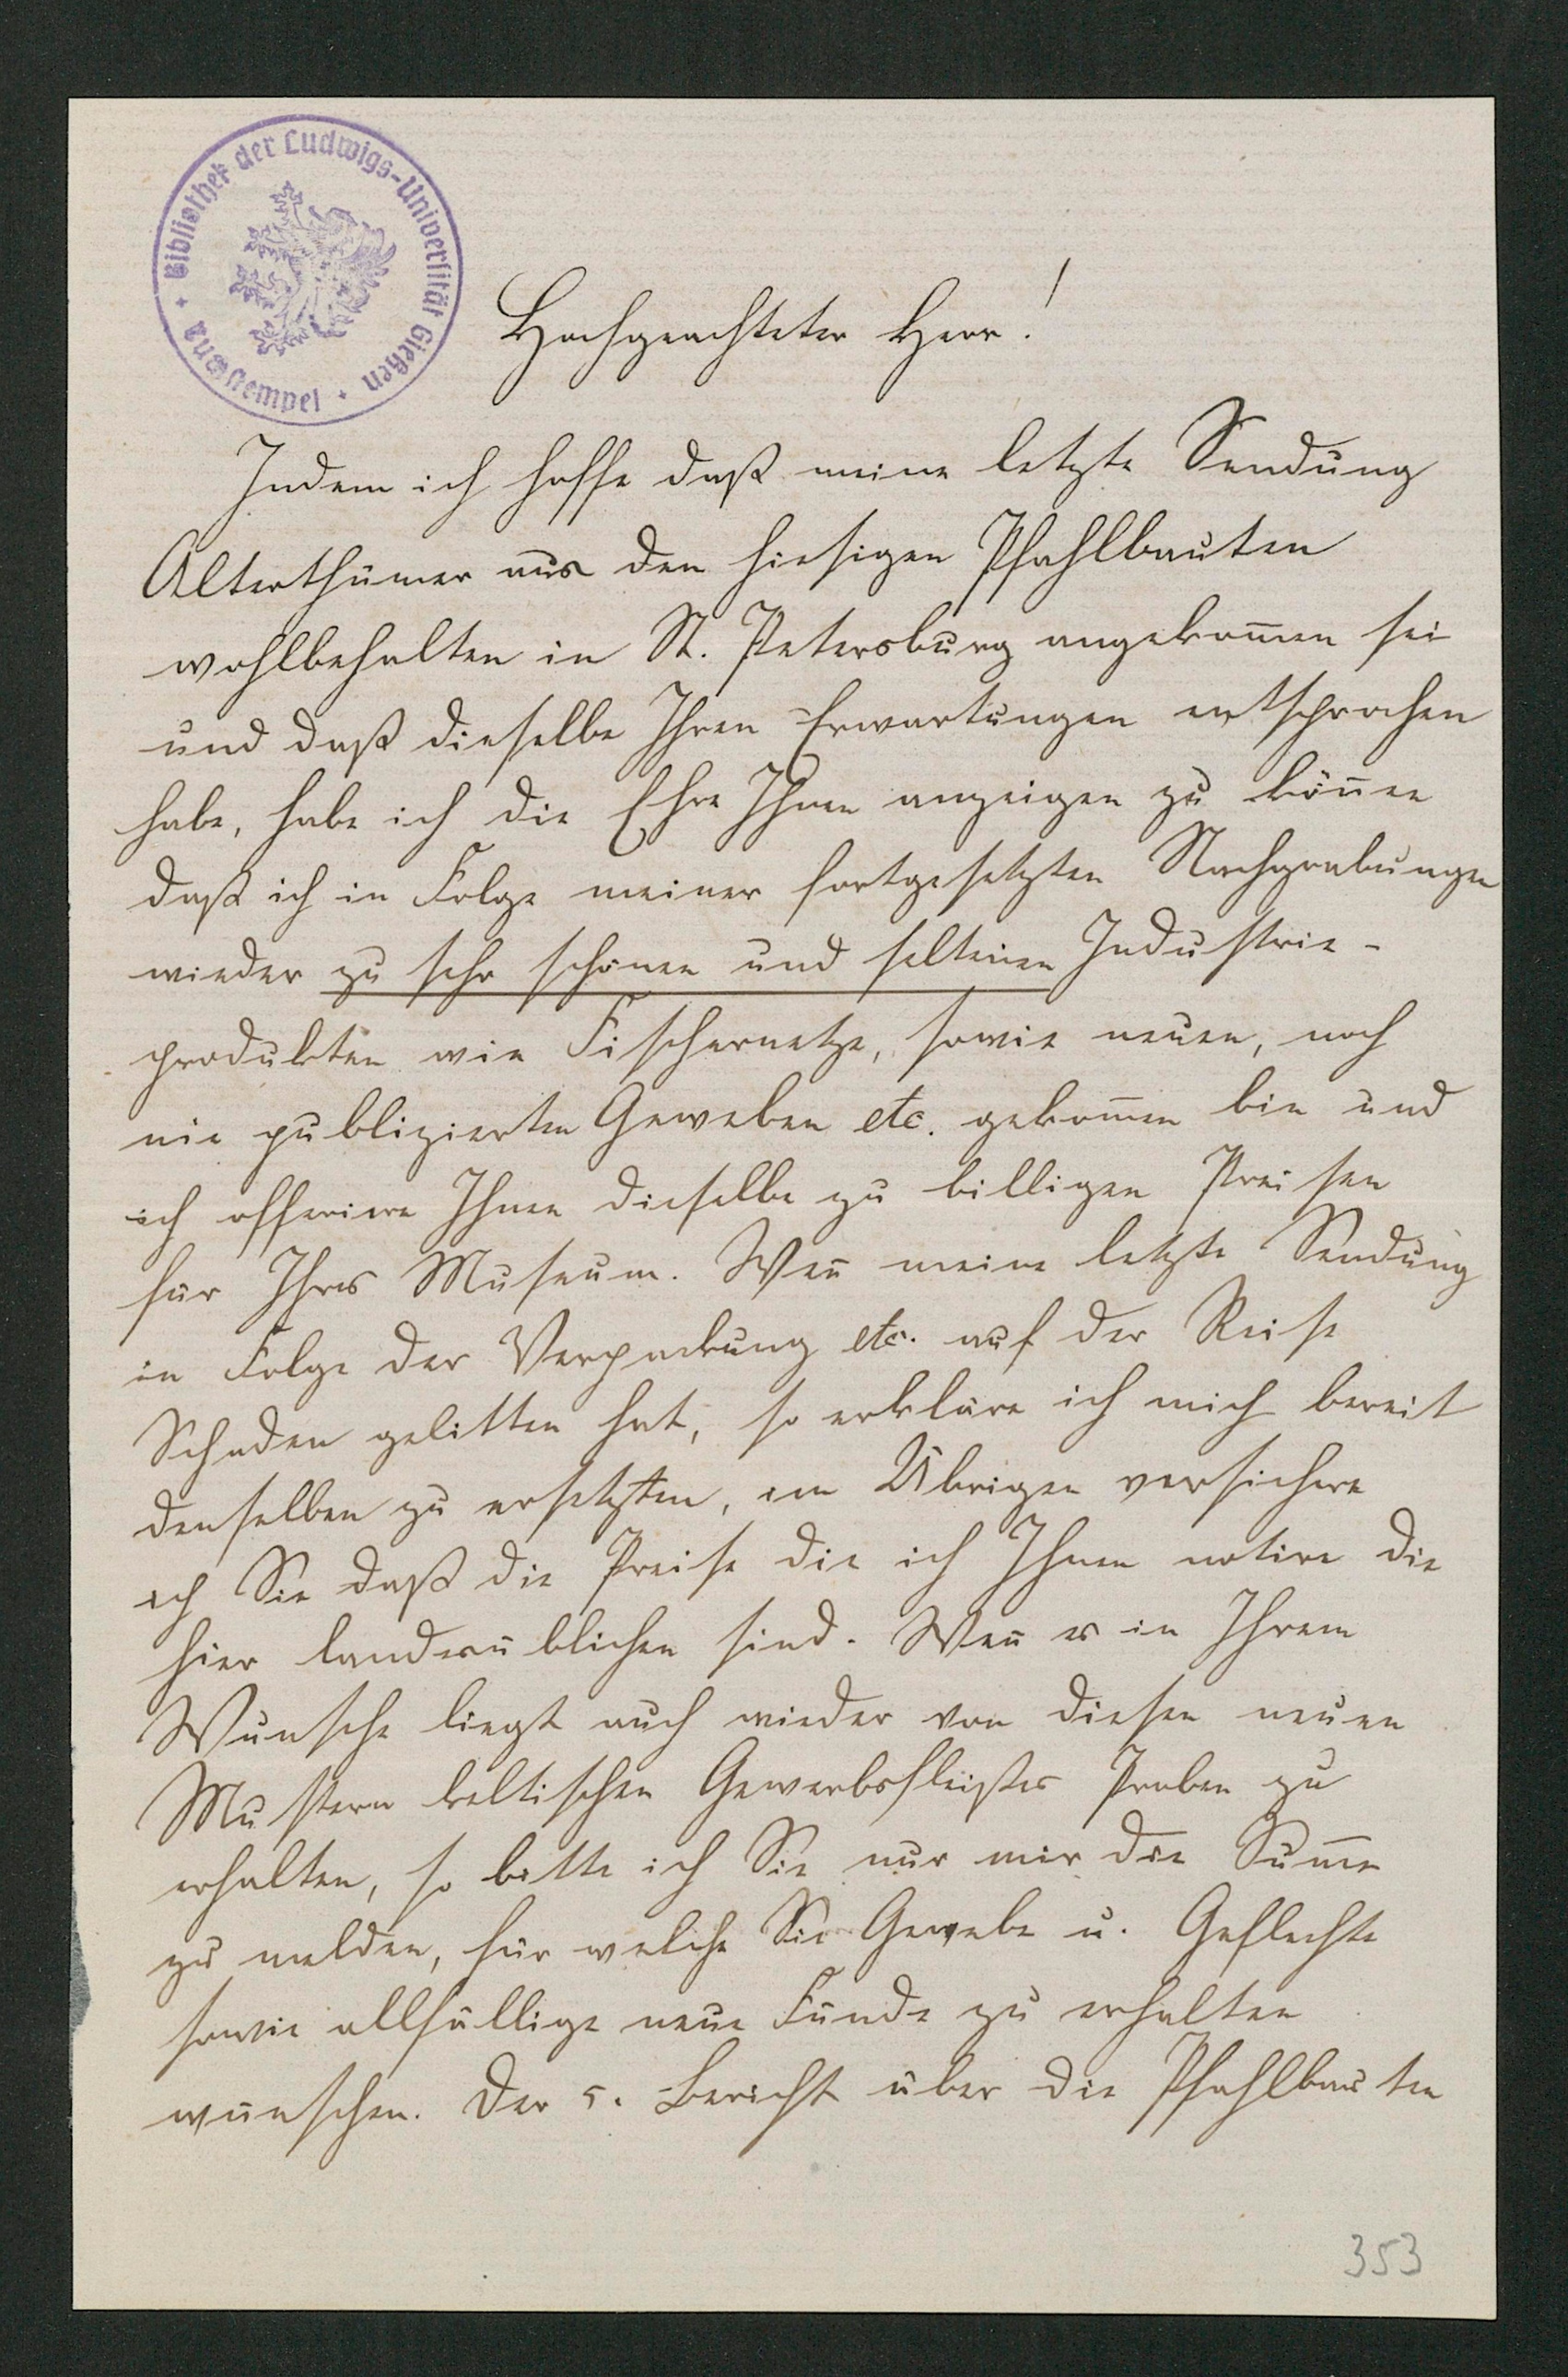 Bibliothek der Ludwigs-Universität Gießen
Buchstempel
Hochgeachteter Herr!
Indem ich hoffe daß meine letzte Sendung
Alterthümer aus den hiesigen Pfahlbauten
wohlbehalten in St. Petersburg angekom̅en sei
und daß dieselbe Ihren Erwartungen entsprochen
habe, habe ich die Ehre Ihnen anzeigen zu kön̅en
daß ich in Folge meiner fortgesetzten Nachgrabungen
wieder zu sehr schönen und seltenen Industrie-
produkten wie Fischernetze, sowie neuen, noch
nie publizierten Geweben etc. gekom̅en bin und
ich offeriere Ihnen dieselbe zu billigen Preisen
für Ihres Museum. Wen̅ meine letzte Sendung
in Folge der Verpackung etc. auf der Reise
Schaden gelitten hat, so erkläre ich mich bereit
denselben zu ersetzten, im Übrigen versichere
ich Sie daß die Preise die ich Ihnen notire die
hier landesüblichen sind. Wen̅ es in Ihrem
Wunsche liegt auch wieder von diesen neuen
Mustern keltischen Gewerbsfleißes Proben zu
erhalten, so bitte ich Sie nur mir die Sum̅e
zu melden, für welche Sie Gewebe u. Geflechte
sowie allfällige neue Funde zu erhalten
wünschen. Der 5. Bericht über die Pfahlbauten
353